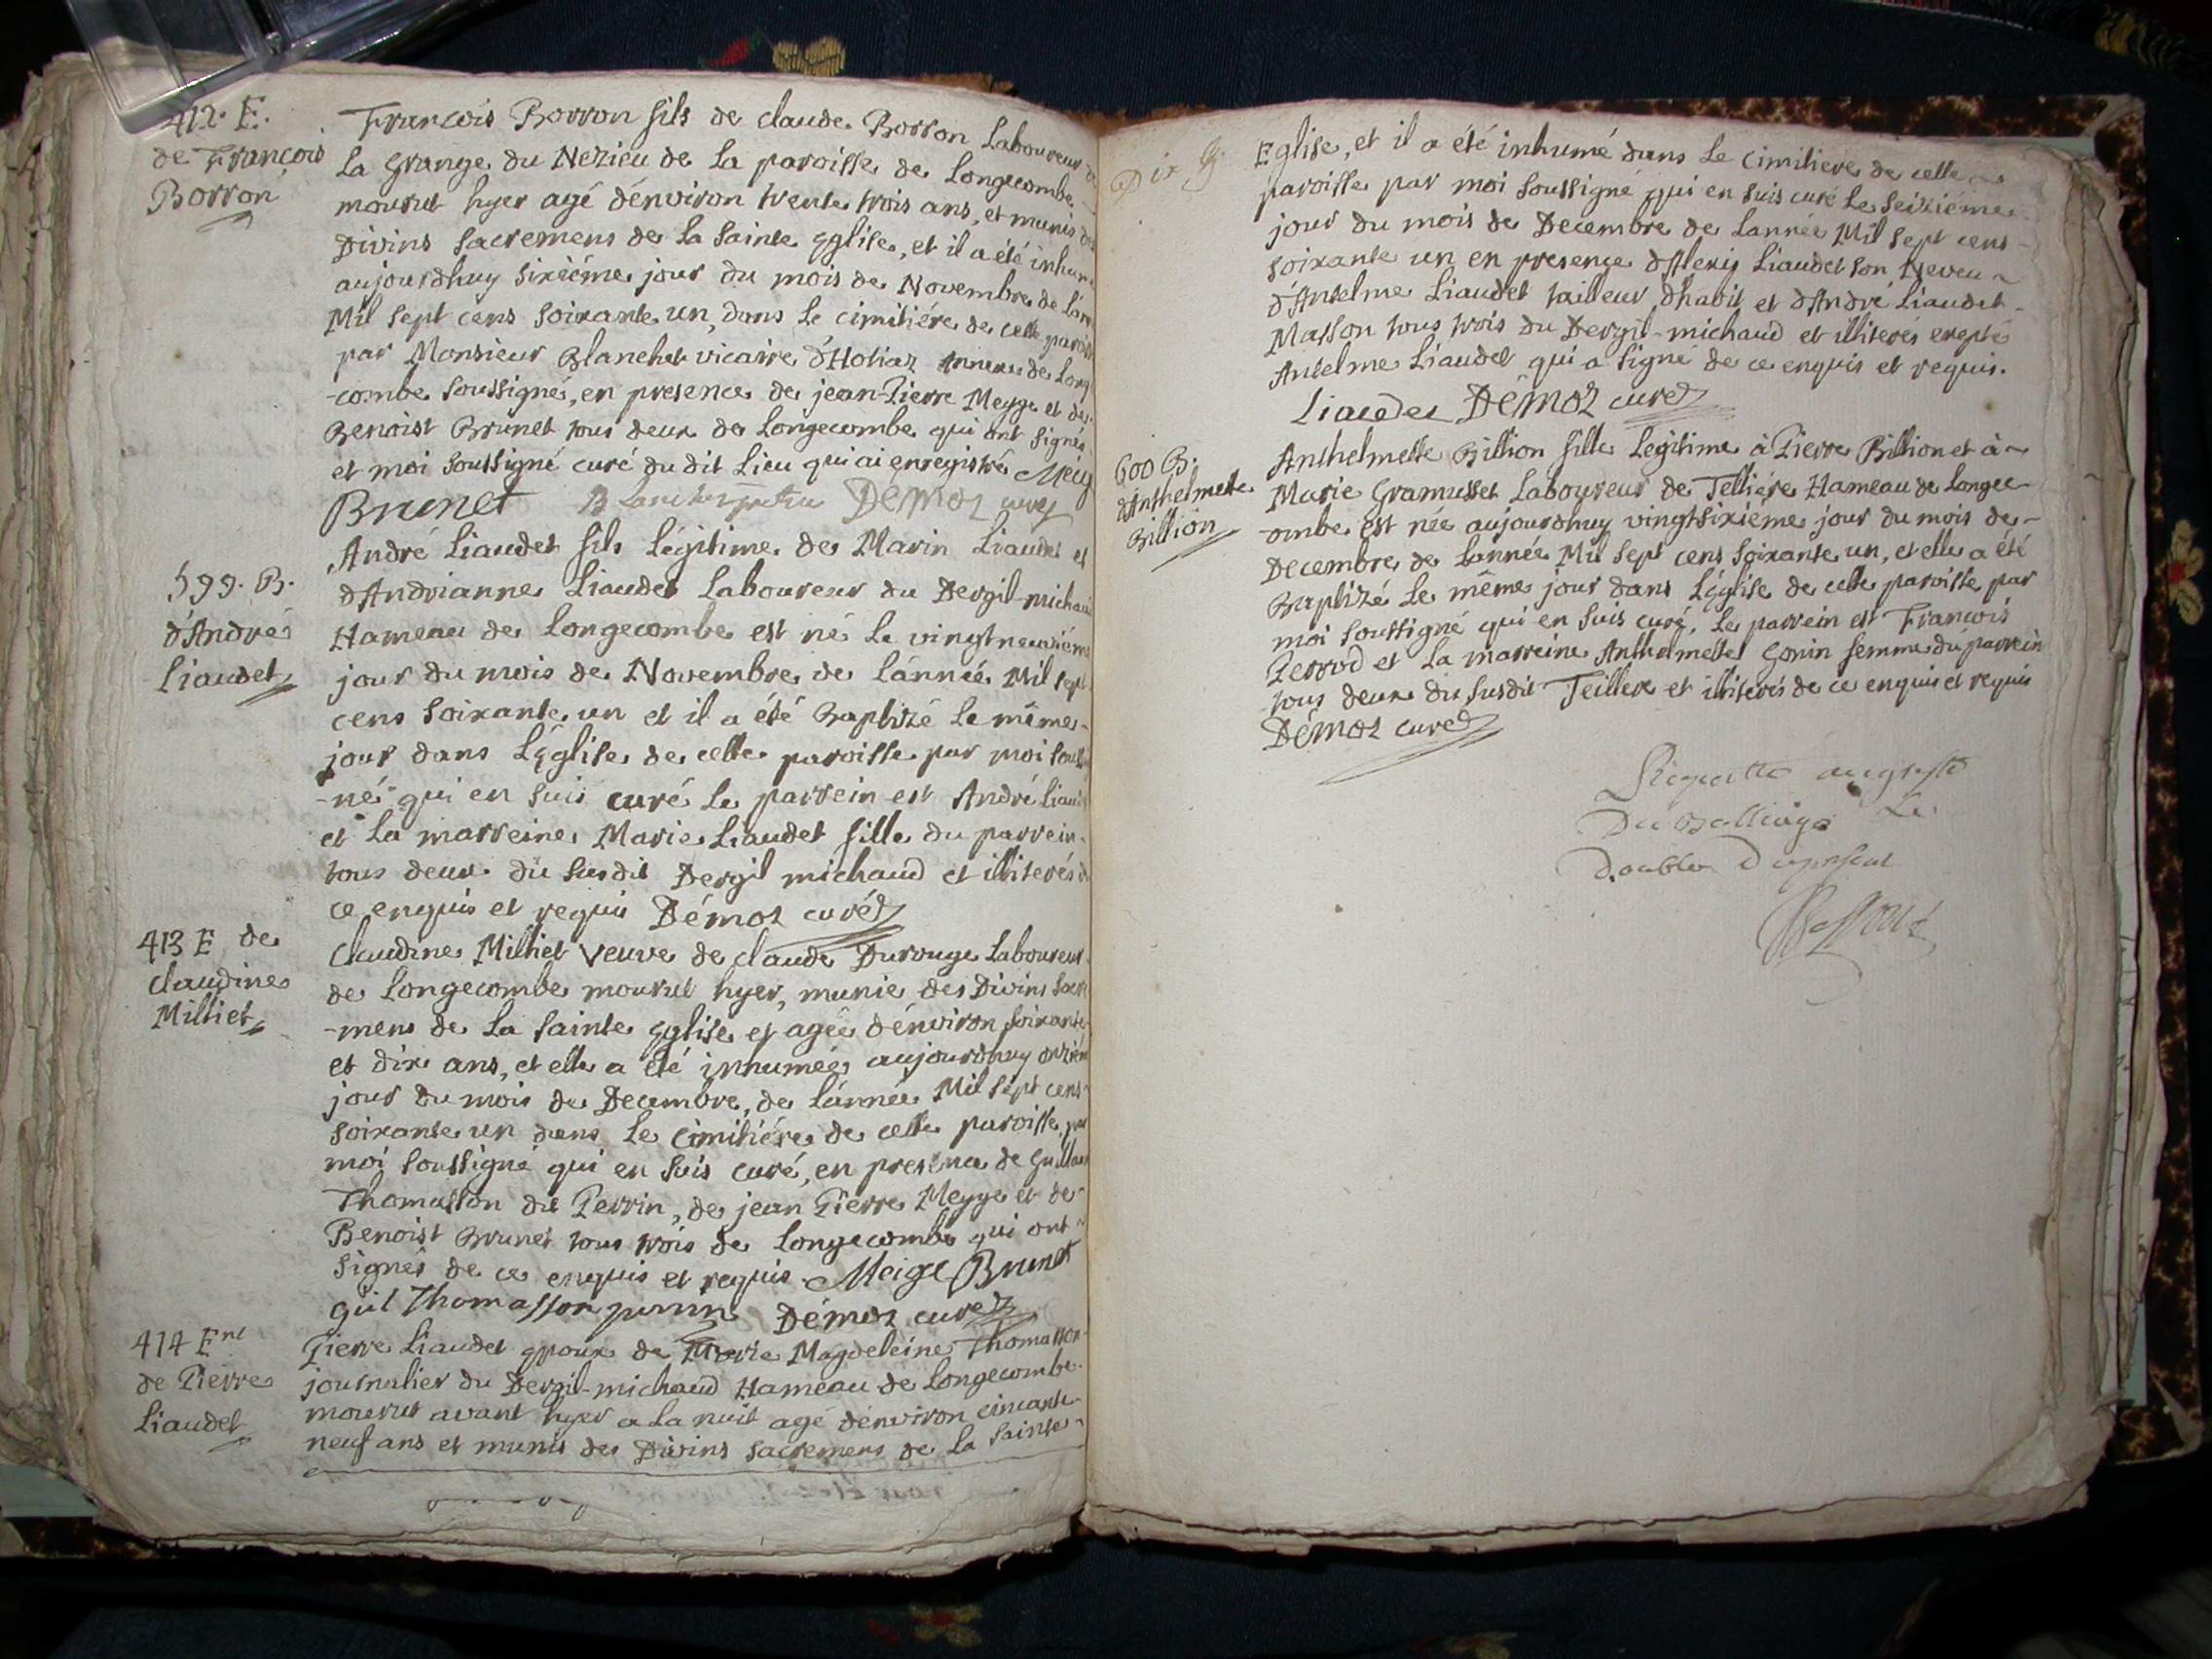 412. E.
de François
Borron
François Borron fils de claude Borron Laboureur de
La Grange du Nezieu de La paroisse de Longecombe
mourut hyer agé d'environ trente trois ans, et munis des
Divins Sacremens de La Sainte Eglise, et il a été inhumé
aujourdhuy sixiéme jour du mois de Novembre de L'an
Mil Sept cens Soixante un, dans Le cimitiére de cette paroisse
par Monsieur Blanchet vicaire d'Hotiaz Annexe de Long
-combe soussigné, en presence de jean-Pierre Meyge et de
Benoist Brunet tous deux de Longecombe qui ont signés
et moi soussigné curé du dit Lieu qui ai enregistré Meig
Brunet Blanchet Démoz curé
599. B.
d'André
Liaudet
André Liaudet fils Légitime de Marin Liaudet et
d'Andrianne Liaudet Laboureur du Dergil-michaud
Hameau de Longecombe est né Le vingtneuviéme
jour du mois de Novembre de L'année Mil Sept
cens Soixante un et il a été Baptizé Le même
jour dans L'Eglise de cette paroisse par moi soussi
-né qui en suis curé Le parrein est André Liaud
et La marreine Marie Liaudet fille du parrein
tous deux du susdit Dergil michaud et illiterés de
ce enquis et requis Démoz curé
413 E de
Claudine
Milliet
Claudine Milliet Veuve de claude Durouge Laboureur
de Longecombe mourut hyer, munie des Divins Sacre
-mens de La Sainte Eglise et agée d'environ soixante
et dix ans, et elle a été inhumée aujourdhuy onziém
jour du mois de Decembre, de L'année Mil Sept cens
soixante un dans Le cimitiére de cette paroisse, par
moi soussigné qui en suis curé, en presence de Guillau
Thomasson du Perrin, de jean Pierre Meyge et de
Benoist Brunet tous trois de Longecombe qui ont
signés de ce enquis et requis Meige Brunet
guil Thomasson perrin Démoz curé
414 Ent
de Pierre
Liaudet
Pierre Liaudet epoux de Marie Magdeleine Thomasson
journalier du Dergil-michaud Hameau de Longecombe
mourut avant hyer a La nuit agé d'environ cincante
neuf ans et munis des Divins Sacremens de La Sainte
Dix 9.
Eglise, et il a été inhumé dans Le cimitiere de cette
paroisse par moi soussigné qui en suis curé Le Seiziéme
jour du mois de Decembre de L'année Mil Sept cens
soixante un en presence d'Alexis Liaudet son Neveu
d'Antelme Liaudet tailleur d'habit et d'André Liaudet
Masson tous trois du Dergil-michaud et illiterés exepté
Antelme Liaudet qui a signé de ce enquis et requis.
Liaudet Démoz curé
600 B.
d'Anthelmette
Billion
Anthelmette Billion fille Legitime à Pierre Billion et à
Marie Gramusset Laboureur de Telliére Hameau de Longec
-ombe est née aujourdhuy vingtsixiéme jour du mois de
Decembre de L'année Mil Sept cens Soixante un, et elle a été
Baptizé Le même jour dans L'Eglise de cette paroisse par
moi soussigné qui en suis curé, Le parrein est François
Perrod et La marreine Anthelmette Gonin femme du parrein
tous deux du susdit Teillere et illiterés de ce enquis et requis
Démoz curé
Du Balliage Le
Double